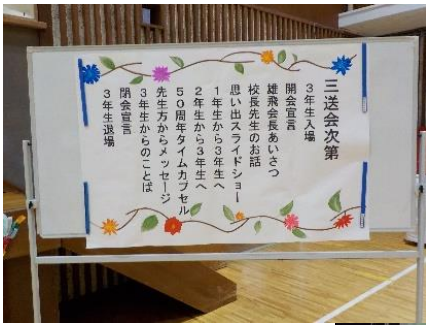 三送会次第
3年生入場
開会宣言
雄飛会長あいさつ
校長先生のお話
思い出スライドショー
1年生から3年生へ
2年生から3年生へ
50周年タイムカプセル
先生方からメッセージ
3年生からのことば
閉会宣言
3年生退場